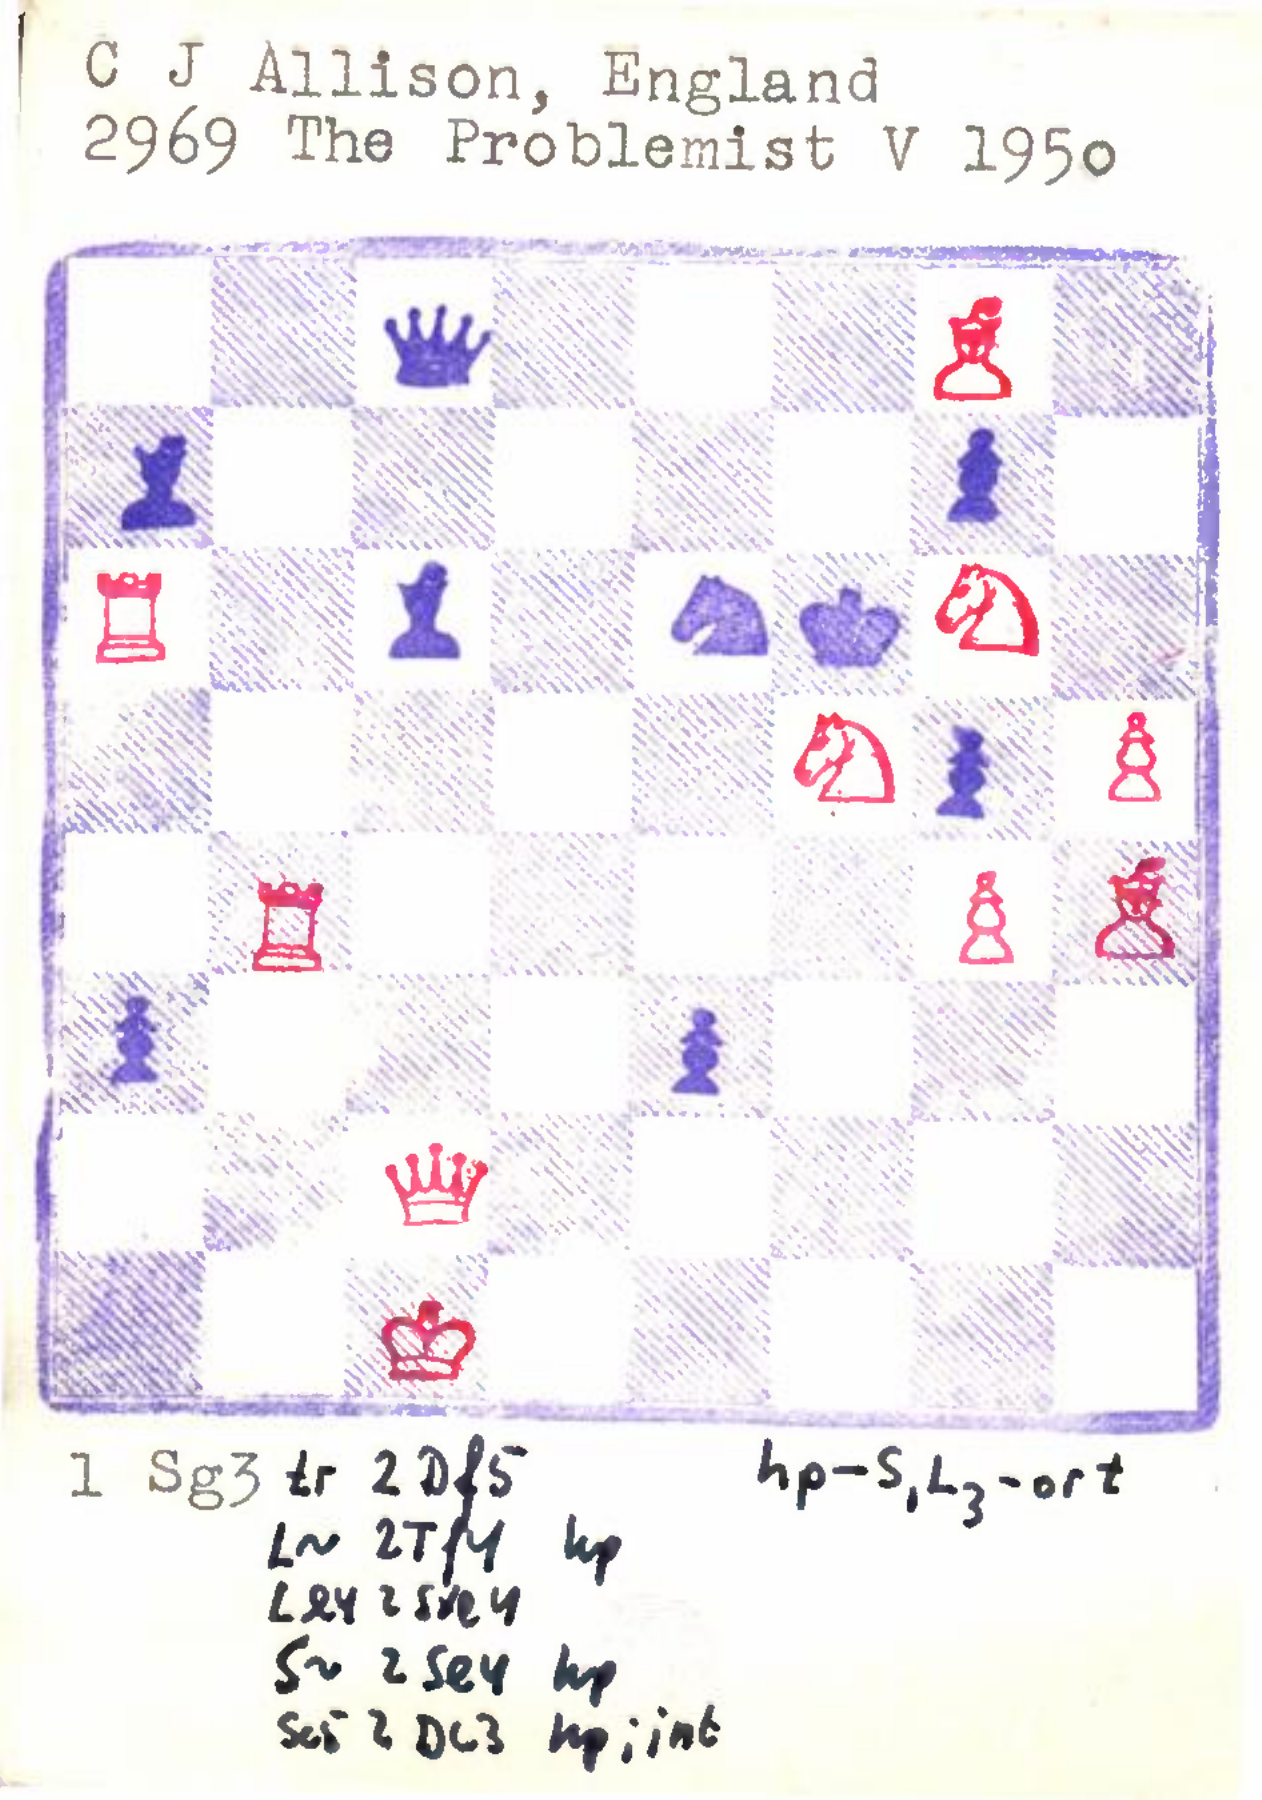 C J Allison, England
2969 The Problemist V 195o
1 Sg3 tr 2 Df5 hp-S,L3-ort
L~ 2Tf4 hp
Le4 2 Sxe4
S~ 2 Se4 hp
Sc5 2 Dc3 hp; int